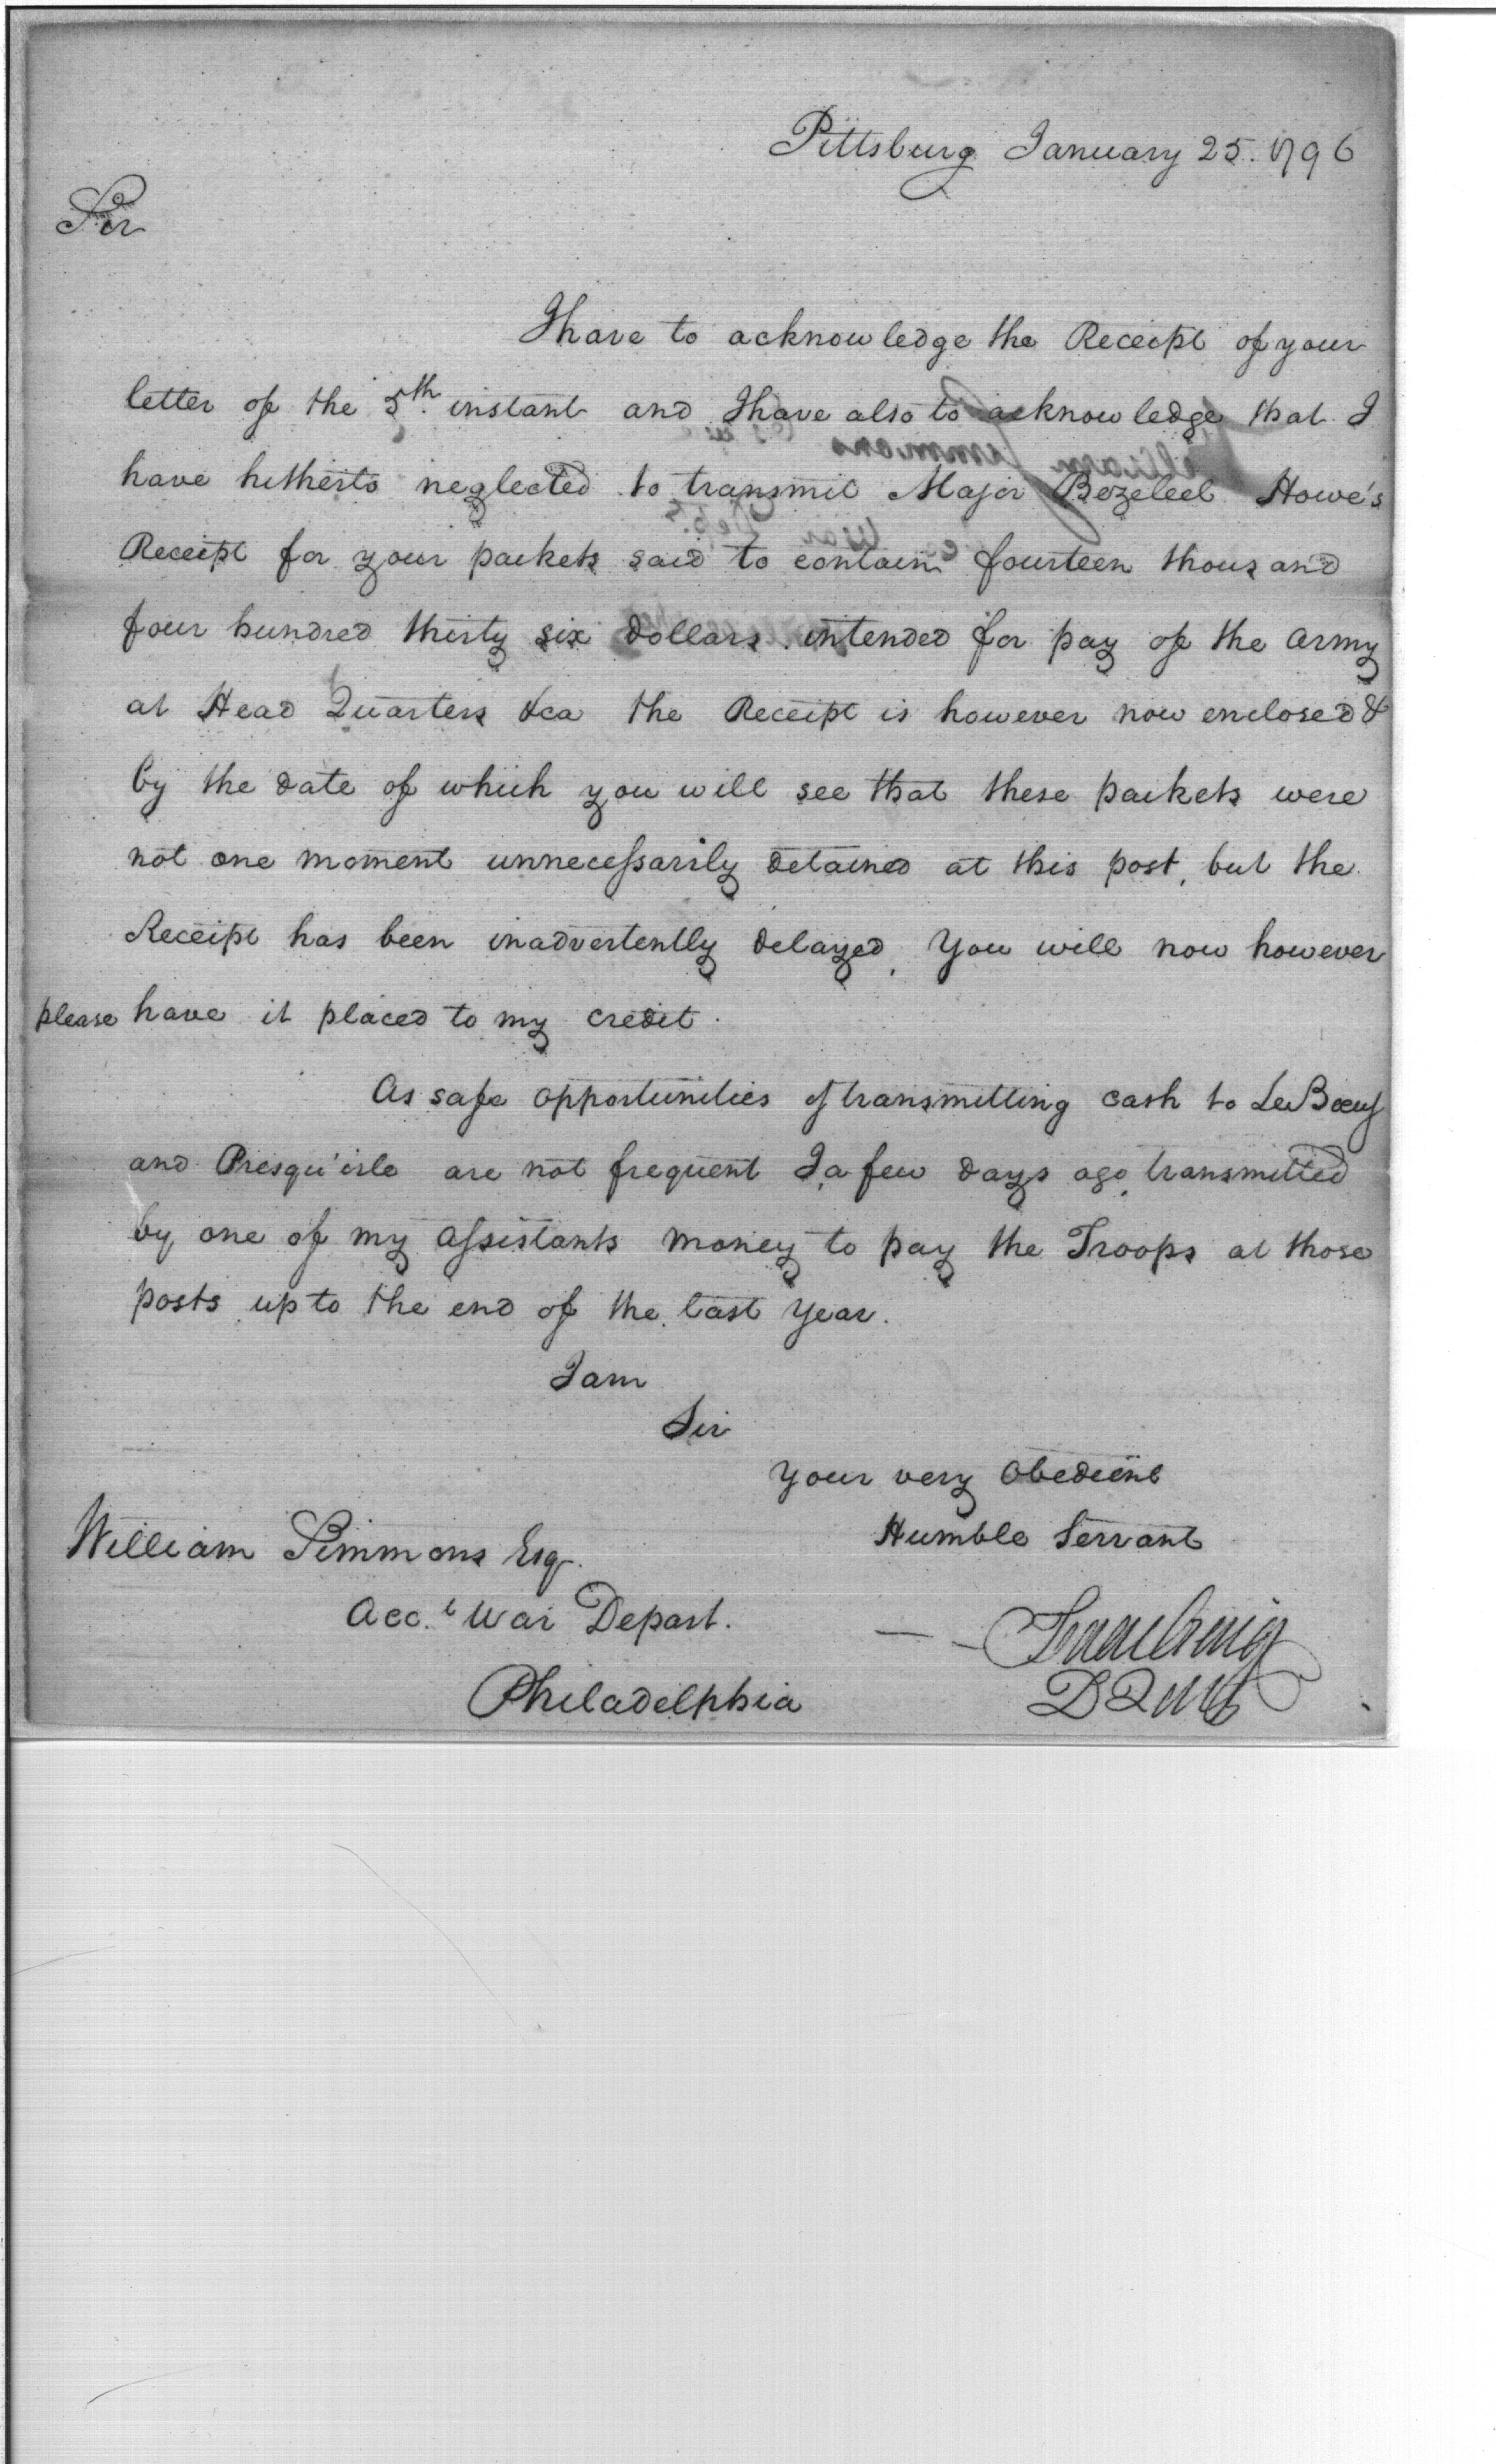 Pittsburg January 25. 1796
Sir
I have to acknowledge the Receipt of your
letter of the 5th. instant and I have also to acknowledge that I
have hitherto neglected to transmit Major Bezeleel Howe's
Receipt for your packets said to contain fourteen thousand
four hundred thirty six dollars intended for pay of the Army
at Head Quarters &ca the Receipt is however now enclosed &
by the date of which you will see that these packets were
not one moment unnecessarily detained at this post, but the
Receipt has been inadvertently delayed, You will now however
please have it placed to my credit.
As safe opportunities of transmitting cash to LeBœuf
and Presqu'isle are not frequent I, a few days ago, transmitted
by one of my assistants money to pay the Troops at those
posts up to the end of the last Year.
I am
Sir
Your very Obedient
Humble Servant
William Simmons Esqr.
Acc.t War Depart.
Philadelphia
Isaac Craig
D Q M G